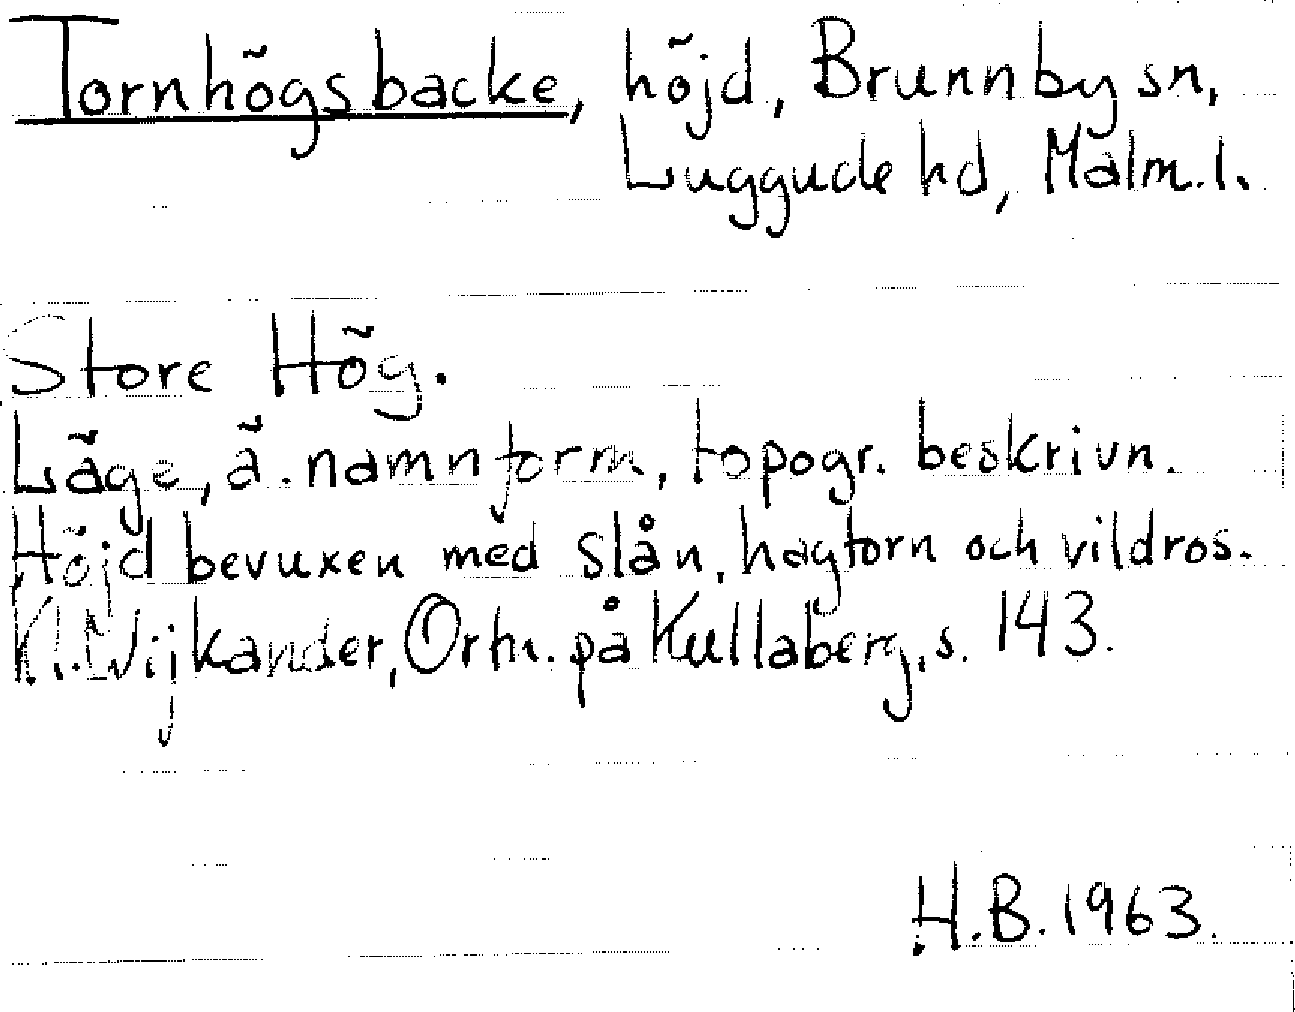 Tornhögsbacke, höjd, Brunnby sn,
Luggude hd, Malm.l.
Store Hög.
Läge, ä. namnform, topogr. beskrivn.
Höjd bevuxen med slån, hagtorn och vildros.
K. Wijkander, Ortn. på Kullaberg, s. 143.
H.B. 1963.